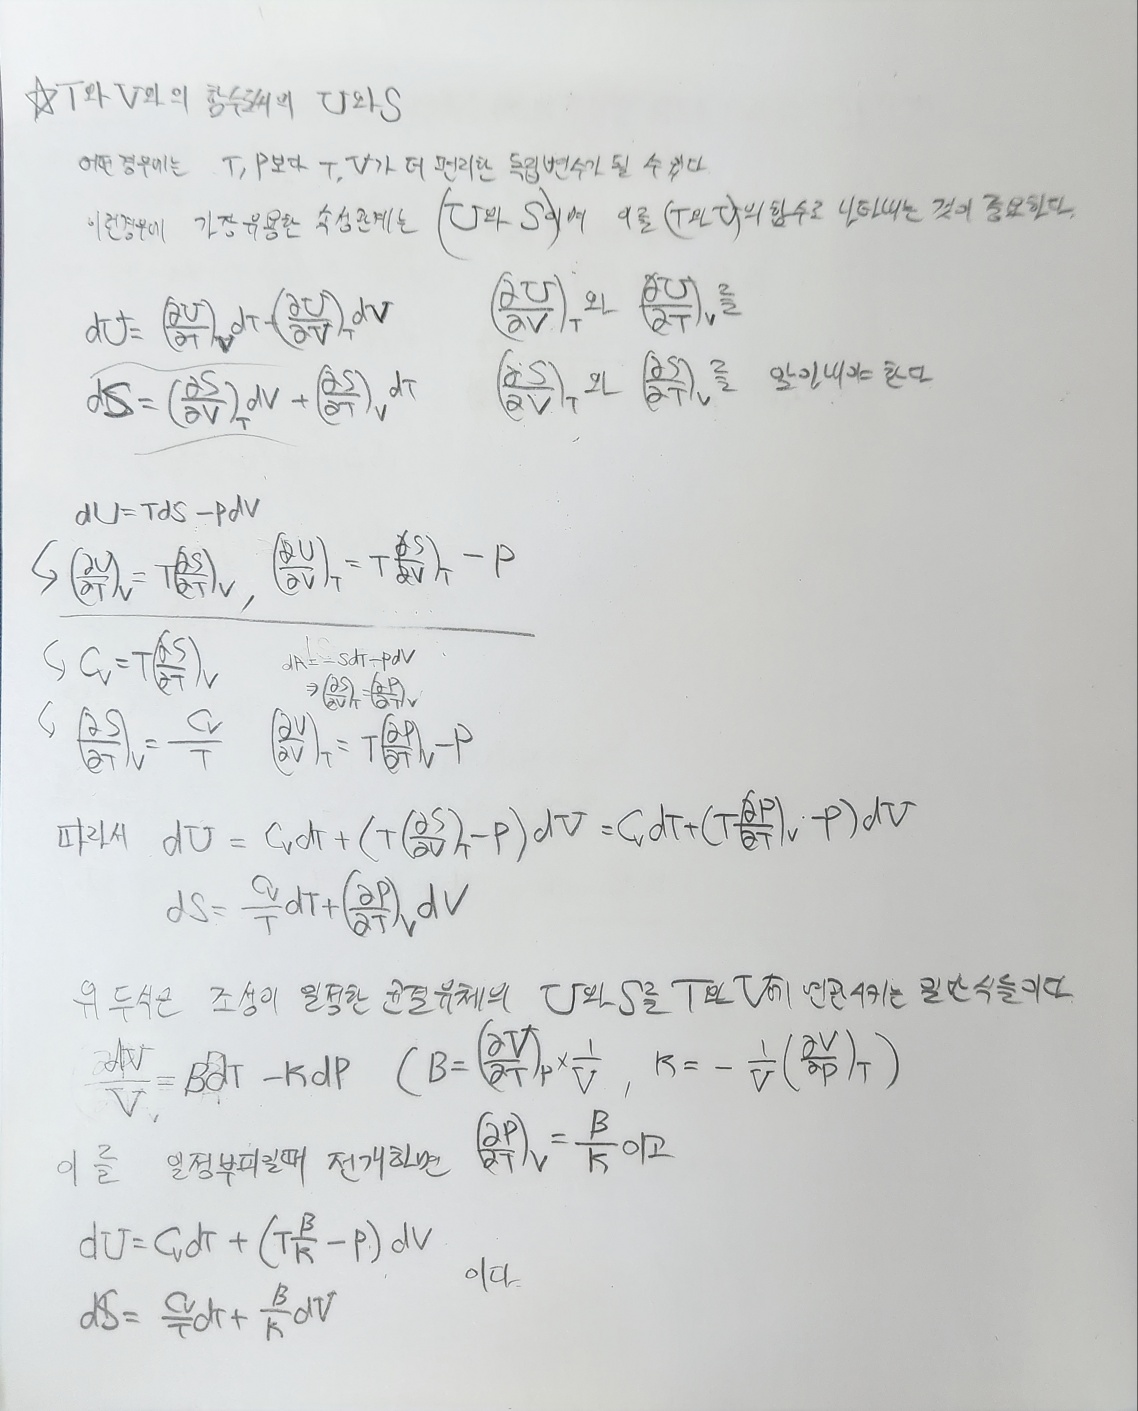 ☆T와 V와의 함수로서의 U와S
어떤 경우에는 T, P보다 T, V가 더 편리한 독립변수가 될 수 있다
이런경우에 가장 유용한 속성관계는 (U와 S)이며 이를 (T와 V)의 함수로 나타내는 것이 중요한다.
dU = (∂U/∂T)_V dT + (∂U/∂V)_T dV (∂U/∂V)_T 와 (∂U/∂T)_V를
dS = (∂S/∂V)_T dV + (∂S/∂T)_V dT (∂S/∂V)_T 와 (∂S/∂T)_V를 알아내야 한다
dU = TdS - PdV
↳ (∂U/∂T)_V = T(∂S/∂T)_V , (∂U/∂V)_T = T(∂S/∂V)_T - P
↳ Cv = T(∂S/∂T)_V dA = -SdT - PdV
⇒ (∂S/∂V)_T = (∂P/∂T)_V
↳ (∂S/∂T)_V = Cv/T (∂U/∂V)_T = T(∂P/∂T)_V - P
따라서 dU = CvdT + (T(∂S/∂V)_T - P)dV = CvdT + (T(∂P/∂T)_V - P)dV
dS = Cv/T dT + (∂P/∂T)_V dV
위 두식은 조성이 일정한 균질유체의 U와 S를 T와 V에 연관시키는 일반식들이다
dV/V = BdT - KdP (B = (∂V/∂T)_P × 1/V , K = - 1/V (∂V/∂P)_T)
이를 일정부피일때 전개하면 (∂P/∂T)_V = B/K 이고
dU = CvdT + (T B/K - P)dV
이다
dS = Cv/T dT + B/K dV